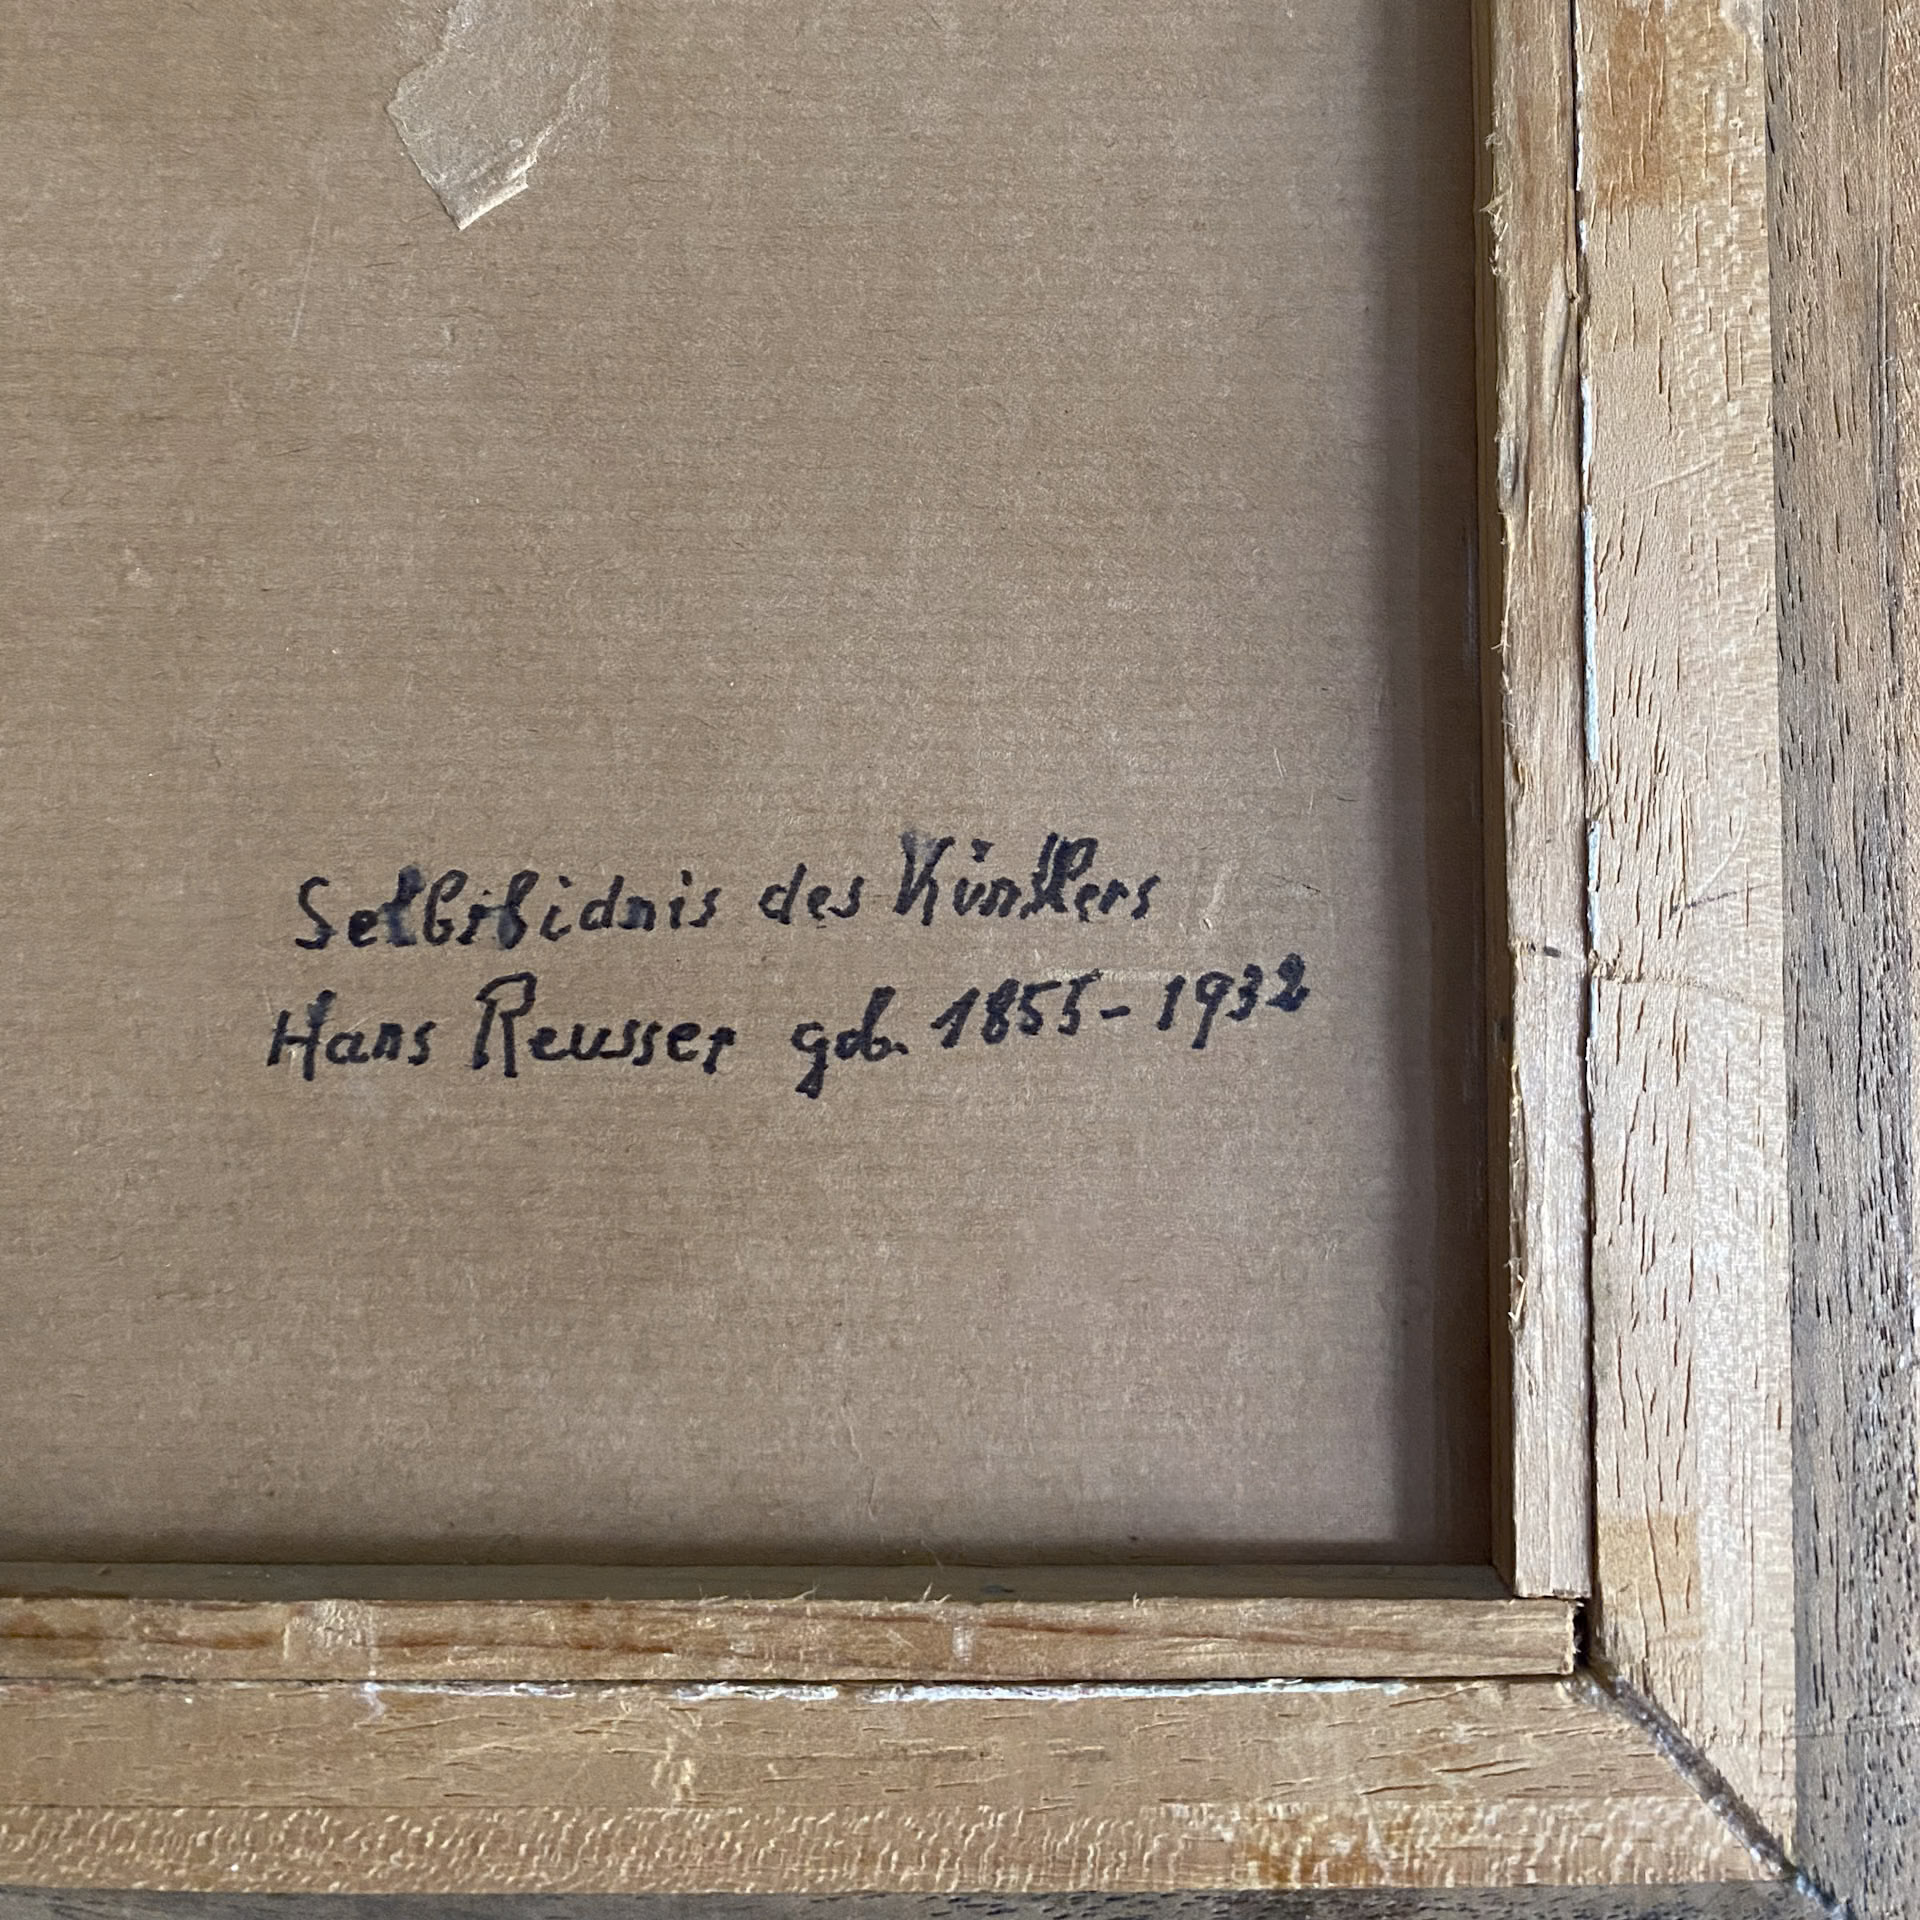 Selbstbidnis des Künstlers
Hans Reusser geb. 1855-1932